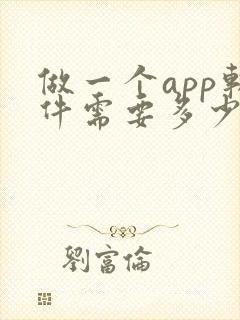 做一个app軟
件需要多少
劉富倫